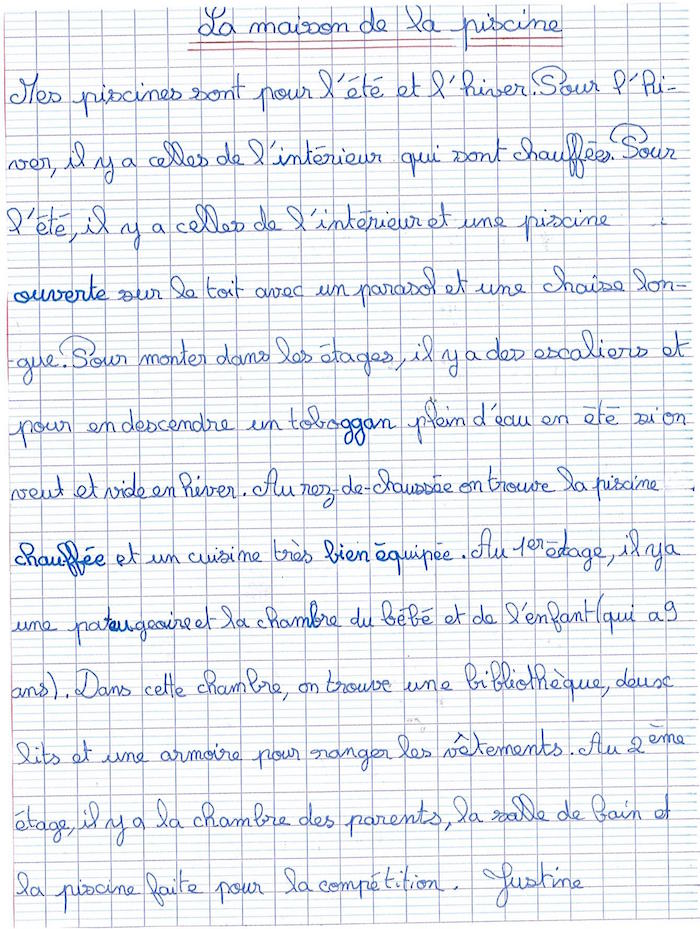 La maison de la piscine
Mes piscines sont pour l'été et l'hiver. Pour l'hi-
ver, il y a celles de l'intérieur qui sont chauffées. Pour
l'été, il y a celles de l'intérieur et une piscine
ouverte sur le toit avec un parasol et une chaise lon-
-gue. Pour monter dans les étages, il y a des escaliers et
pour en descendre un toboggan plein d'eau en été si on
veut et vide en hiver. Au rez-de-chaussée on trouve la piscine
chauffée et un cuisine très bien équipée. Au 1er étage, il y a
une pataugeaire et la chambre du bébé et de l'enfant (qui a 9
ans). Dans cette chambre, on trouve une bibliothèque, deux
lits et une armoire pour ranger les vêtements. Au 2ème
étage, il y a la chambre des parents, la salle de bain et
la piscine faite pour la compétition. Justine